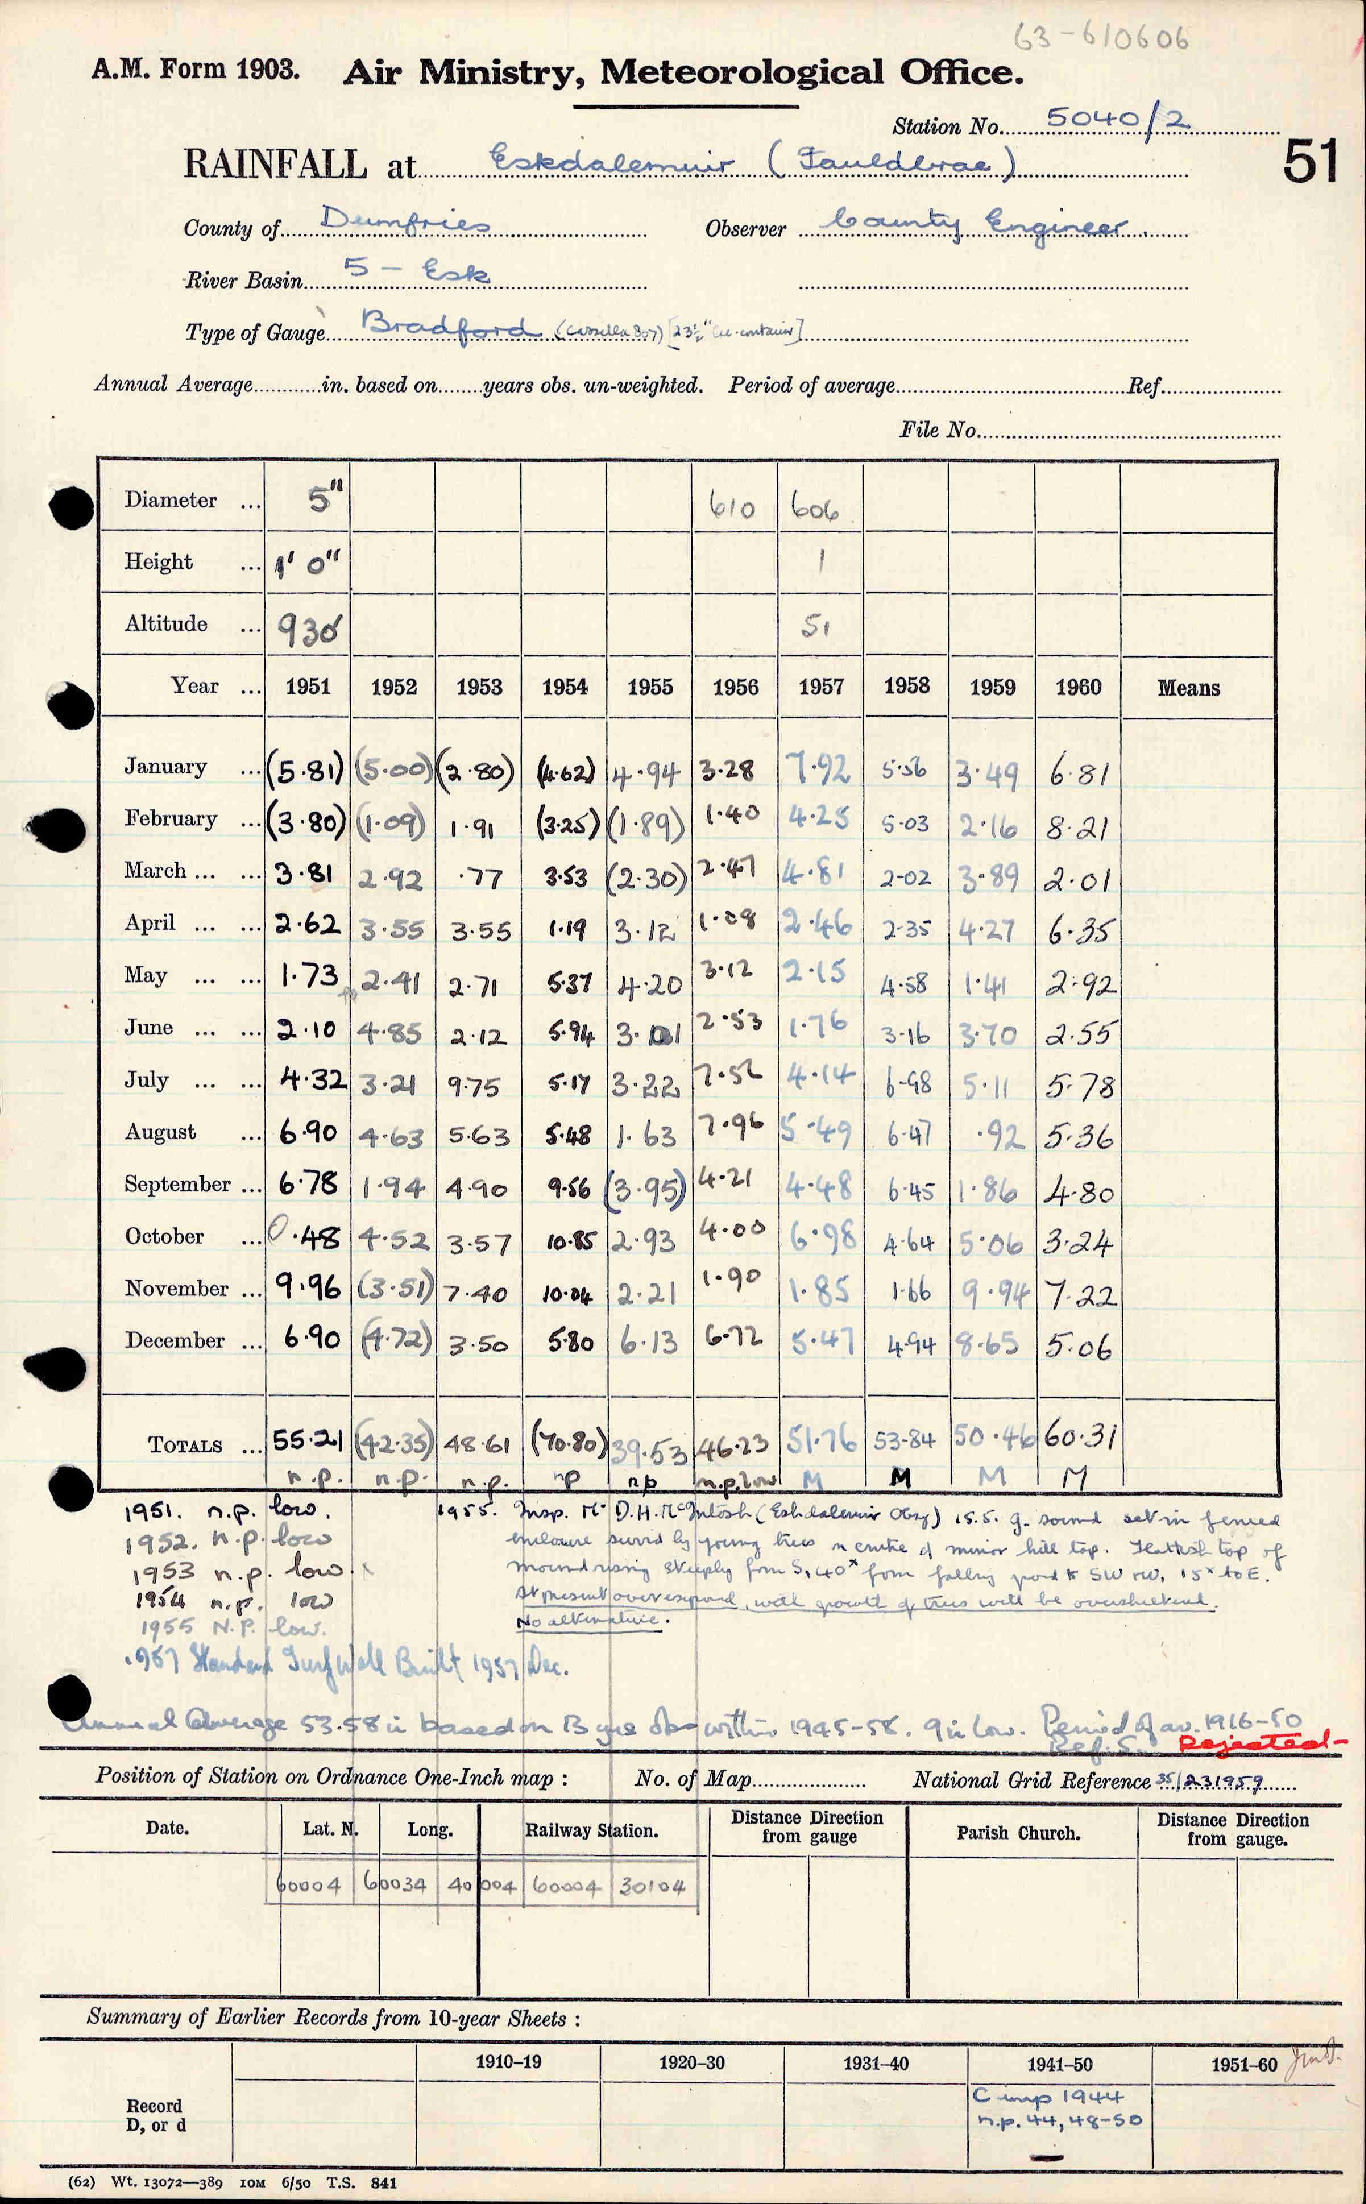 63-610606
A.M. Form 1903. Air Ministry, Meteorological Office.
Station No. 5040/2
RAINFALL at Eskdalemuir (Fauldbrae) 51
County of Dumfries Observer County Engineer
River Basin 5 - Esk
Type of Gauge Bradford (Casella 307) [23½"
Annual Average in. based on years obs. un-weighted. Period of average Ref.
File No.
Diameter ... 5" 610 606
Height ... 1' 0" 1
Altitude ... 930' 51
Year ... 1951 1952 1953 1954 1955 1956 1957 1958 1959 1960 Means
January ... (5.81) (5.00) (2.80) (4.62) 4.94 3.28 7.92 5.56 3.49 6.81
February ... (3.80) (1.09) 1.91 (3.25) (1.89) 1.40 4.25 5.03 2.16 8.21
March ... ... 3.81 2.92 .77 3.53 (2.30) 2.47 4.81 2.02 3.89 2.01
April ... ... 2.62 3.55 3.55 1.19 3.12 1.08 2.46 2.35 4.27 6.35
May ... ... 1.73 2.41 2.71 5.37 4.20 3.12 2.15 4.58 1.41 2.92
June ... ... 2.10 4.85 2.12 5.94 2.53 1.76 3.16 3.70 2.55
July ... ... 4.32 3.21 9.75 5.17 3.22 7.56 4.14 6.98 5.11 5.78
August ... 6.90 4.63 5.63 5.48 1.63 7.96 5.49 6.47 .92 5.36
September ... 6.78 1.94 4.90 9.56 (3.95) 4.21 4.48 6.45 1.86 4.80
October ... 0.48 4.52 3.57 10.85 2.93 4.00 6.98 4.64 5.06 3.24
November ... 9.96 (3.51) 7.40 10.04 2.21 1.90 1.85 1.66 9.94 7.22
December ... 6.90 (4.72) 3.50 5.80 6.13 6.72 5.47 4.94 8.65 5.06
TOTALS ... 55.21 (42.35) 48.61 (70.80) 39.53 46.23 51.76 53.84 50.46 60.31
n.p. n.p. n.p. np np n.p. low M M M M
1951. n.p. low. 1955. Insp. Mr D.H. McIntosh (Eskdalemuir Obsy) 15.5. g. sound set in fenced
1952. n.p. low enclosure surrd by young trees in centre of minor hill top. Flattish top of
1953 n.p. low. mound rising steeply from S, 40x from falling ground to SW
1954 n.p. low At present overexposed, with growth of trees will be oversheltered.
1955 N.P. low. No alternative.
1957 Standard Turf Wall Built 1957 Dec.
Annual Average 53.58 in based on 13 yrs obs within 1945-58. 9 in low. Period of av. 1916-50
Ref. S. Rejected
Position of Station on Ordnance One-Inch map : No. of Map National Grid Reference 35/231959
Date. Lat. N. Long. Railway Station. Distance Direction from gauge Parish Church. Distance Direction from gauge.
60004 60034 40004 60004 30104
Summary of Earlier Records from 10-year Sheets :
1910–19 1920–30 1931–40 1941–50 1951–60
Record
D, or d
C imp 1944
n.p. 44, 48-50
(62) Wt. 13072—389 10M 6/50 T.S. 841